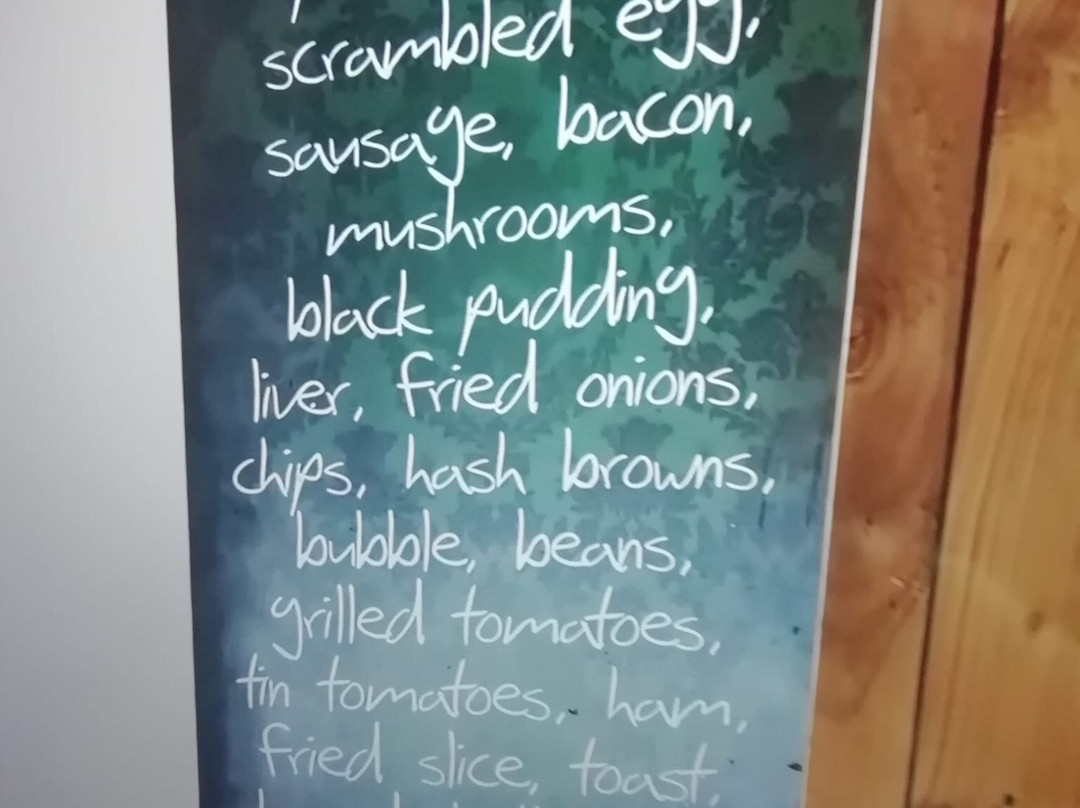 scrambled egg,
sausage, bacon,
mushrooms,
black pudding,
liver, fried onions,
chips, hash browns,
bubble, beans,
grilled tomatoes,
tin tomatoes, ham,
fried slice, toast,